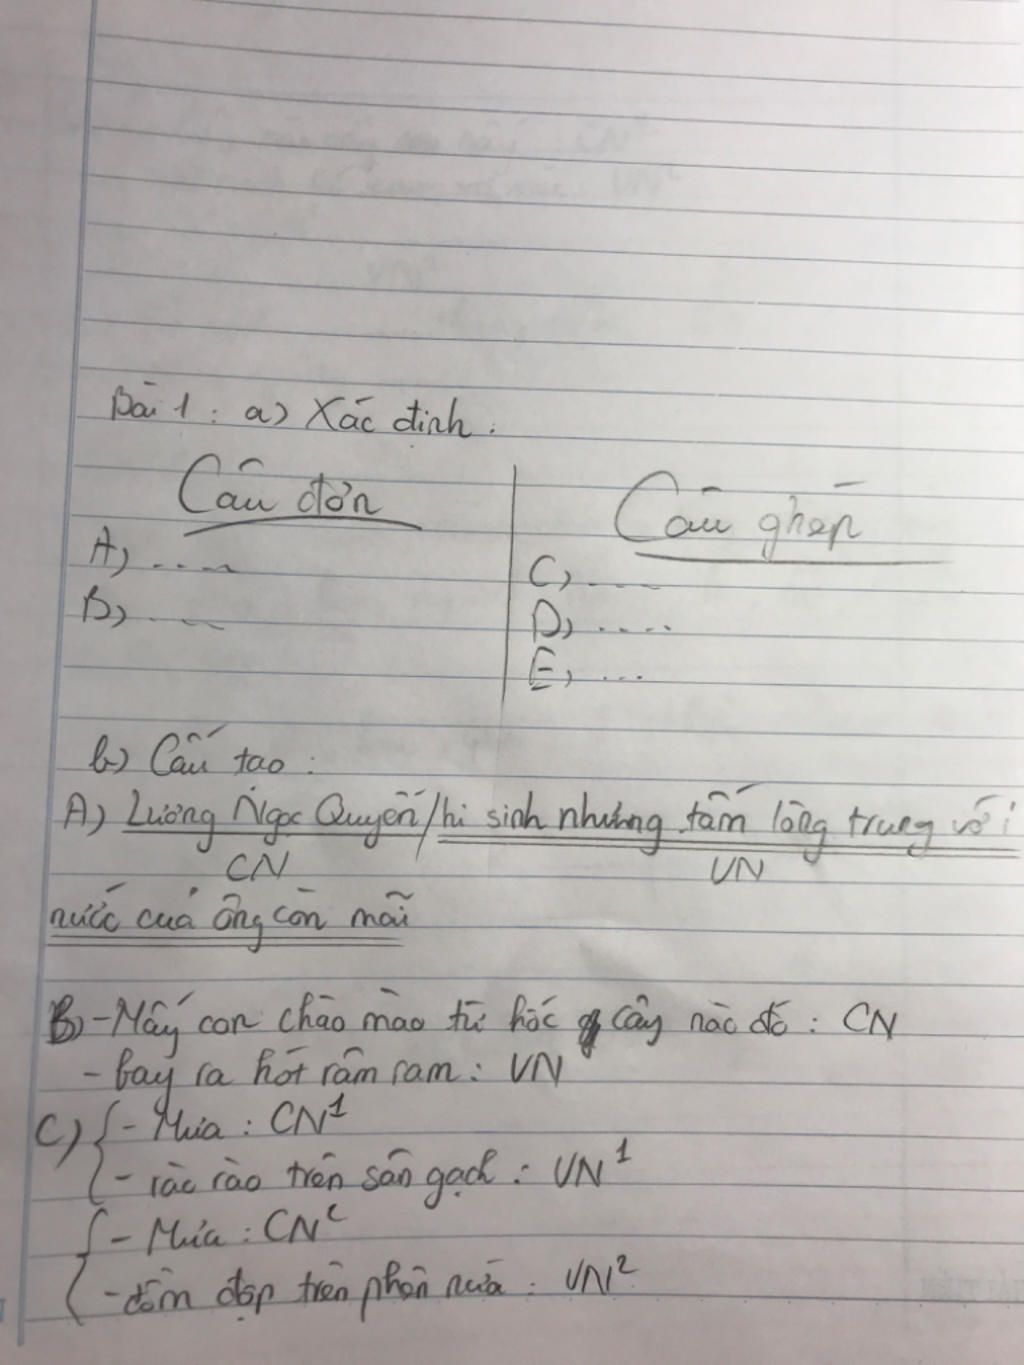 Bài 1: a) Xác định:
Câu đơn
Câu ghép
A) ....
B) ....
C) ....
D) ....
E) ...
b) Cấu tạo:
A) Lương Ngọc Quyến/hi sinh nhưng tấm lòng trung với
CN VN
nước của ông còn mãi
B) - Mấy con chào mào từ hốc cây nào đó: CN
- bay ra hót râm ram: VN
C) { - Mưa: CN¹
- rào rào trên sân gạch: VN¹
{ - Mưa: CN²
- đồm độp trên phên nứa: VN²